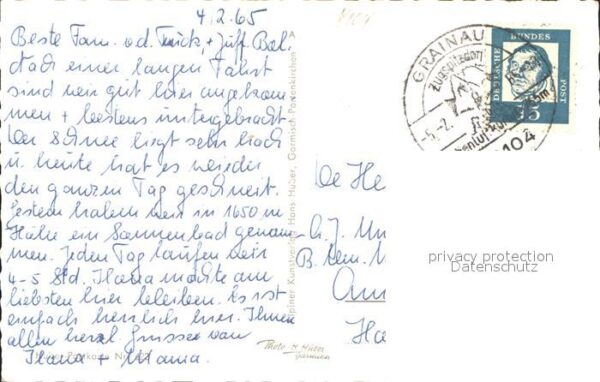 4/2.65
Beste Fam. v.d. Muck + Juff. Bal.
Nach einer langen Fahrt
sind wir gut hier angekom
men + bestens untergebracht
Der Schnee liegt sehr hoch
u heute hat es wieder
den ganzen Tag geschneit.
Gestern haben wir in 1650 m
Höhe ein Sonnenbad genom
men. Jeden Tag laufen wir
4-5 Std. Ilana möchte am
liebsten hier bleiben. Es ist
einfach herrlich hier. Ihnen
allen herzl. Grüsse von
Ilana + Mama.
Alpiner Kunstverlag Hans Huber, Garmisch-Partenkirchen
Photo H. Huber
Garmisch
GRAINAU
Zugspitzdorf
-5.-2.
104
DEUTSCHE
BUNDES
POST
15
De He
A. J.
B.
Am
Ha
privacy protection
Datenschutz